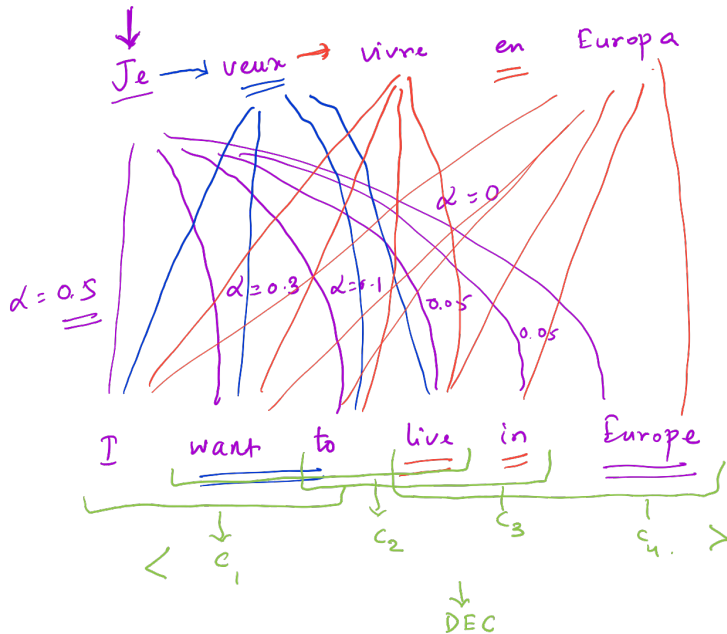 Je → veux → vivre en Europa
α = 0
α = 0.5 α = 0.3 α = 0.1 0.05 0.05
I want to live in Europe
< C1 C2 C3 C4. >
DEC